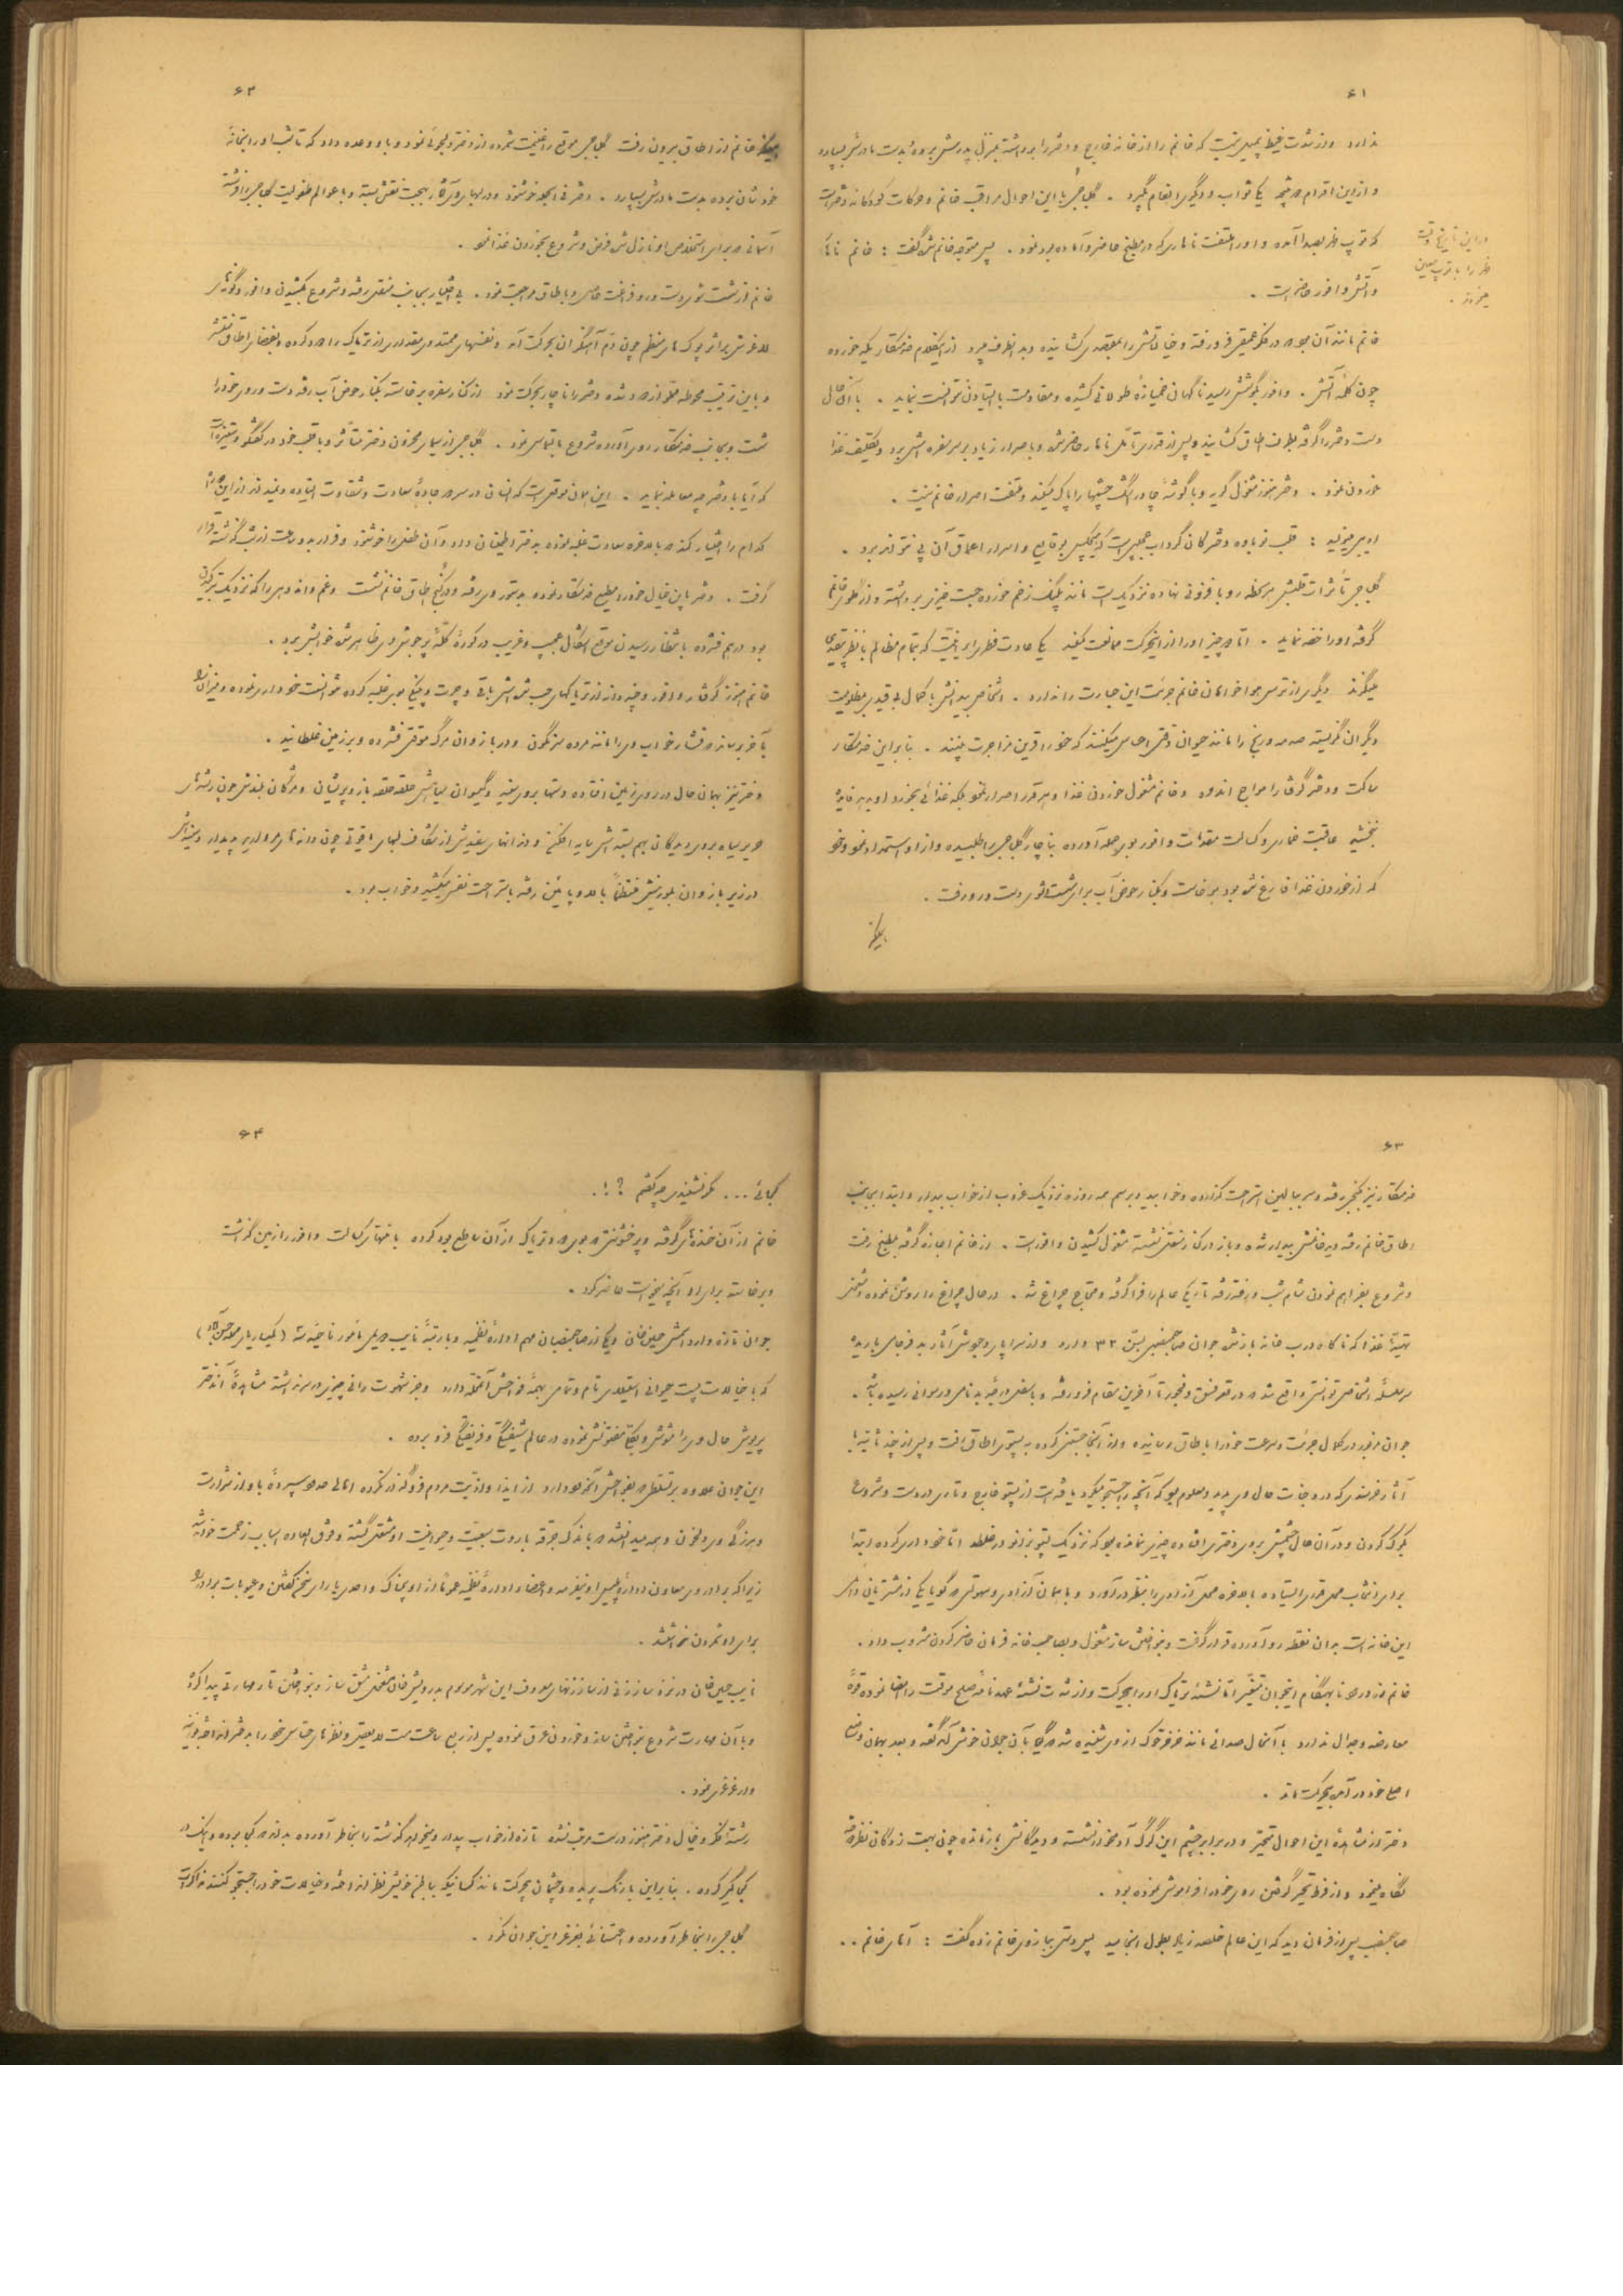 ۶۱
ندارد و از شدت غیظ بمیل نیست که خانم را از خانه خارج و دختر را برداشته بمنزل پدرش برده بدست مادرش بسپارد
و از این اقدام در نتیجه یکی ثواب و دیگری انعام بگیرد . گل جبین با این احوال مراقب خانم و حرکات کودکانه دختر است
که توپ ظهر بصدا آمده و او را ملتفت ناهاری که در مطبخ حاضر و آماده بود نمود . پس متوجه خانم شده گفت : خانم ناهار
و آتش وافور حاضر است .
در این تاریخ وقت
ظهر را با توپ معین
میکردند .
خانم مانند آن بود که در فکر عمیقی فرو رفته و خیالاتش را بمقصدی کشانیده و بدانطرف میبرد از این کلام خدمتکار یکه خورده
چون کلمه آتش . وافور بگوشش رسید ناگهان خمیازه طولانی کشیده و مقاومت با ایستادن نتوانست نماید . با آن حال
دست دختر را گرفته بطرف اطاق کشانید و پس از قدری تأمل ناهار حاضر شد و با اصرار زیاد بر سر سفره اش برد و تکلیف غذا
خوردن نمود . دختر هنوز مشغول گریه و با گوشه چادر اشک چشمها را پاک میکند و ملتفت اصرار خانم نیست .
ادیبی میگوید : قلب نوباوه دخترکان گرداب عجیبی است که هیچکس بوقایع و اسرار اعماق آن پی نتواند برد .
گل جبین تأثرات قلبش هر لحظه رو بافزونی نهاده نزدیک است مانند پلنگ زخم خورده جست و خیزی برداشته و از گلوی خانم
گرفته او را خفه نماید . اما دو چیز او را از اینحرکت ممانعت میکند یکی عادت فطری ایرانیت که بتمام مظالم با نظر بیقیدی
مینگرند دیگری از ترس هواخواهان خانم جرئت این جسارت را ندارد . اشخاص بد منش با کمال بیقیدی مظلومیت
دیگران نگریسته صدمه و رنج را مانند حیوان وقتی احساس میکنند که خود را قرین مزاحمت بینند . بنابراین خدمتکار
ساکت و دختر گرفتار امواج اندوه و خانم مشغول خوردن غذا و هر قدر اصرار نمود بلکه غذائی بخورد او بدهد فایده
نبخشید عاقبت خماری و کسالت مقدمات وافور بوی حمله آورده بناچار گل جبین را طلبیده و از او استمداد نمود و خود
که از خوردن غذا فارغ شده بود برخاست و بکنار حوض آب برای شست و شوی دست و رو رفت .
همینکه
۶۲
همینکه خانم از اطاق بیرون رفت گل جبین موقع را غنیمت شمرده از دختر دلجوئی نمود و باو وعده داد که تا شب او را بخانه
خودشان برده بدست مادرش بسپارد . دختر فی الجمله خوشنود و در لبهای وی آثار بهجت نقش بسته و با عوالم طفولیت گل جبین را فرشته
آسمانی که برای استخلاص او نازل شده فرض و شروع بخوردن غذا نمود .
خانم از شست شوی دست و رو فراغت حاصل و باطاق مراجعت نمود . بی اختیار بجانب منقل رفته و شروع بکشیدن وافور و گونه های
لاغرش بر اثر پوک های منظم چون دم آهنگران بحرکت آمد و نفسهای ممتد وی مقداری از تریاک را دود کرده و بفضای اطاق منتشر
و باین ترتیب محوطه مملو از دود شده دختر را ناچار بحرکت نمود از کنار سفره برخاسته بکنار حوض آب رفته دست و روی خود را
شست و بجانب خدمتکار روی آورده شروع بالتماس نمود . گل جبین از سیمای محزون دختر متأثر و با قلب خود در گفتگو و ستیزه آمد
که آیا با دختر چه معامله نماید . این همان موقعی است که انسان در سر دو جاده سعادت و شقاوت ایستاده و نمیداند از این دو راه
کدام را اختیار کند و بالاخره سعادت غلبه نموده بدختر اطمینان داد و آن طفل را خوشنود و قرار بدو ساعت از شب گذشته قرار
گرفت . دختر باین خیال خود را مطیع خدمتکار نموده بدستور وی رفته و در کنج اطاق خانم نشست و غم و اندوهی را که نزدیک ترکیدن
بود در هم فشرده با انتظار رسیدن موقع اشکال عجیب و غریب در کوره کله پر جوش وی ظاهر شده خوابش برد .
خانم هنوز گرفتار وافور و چند دانه از تریاکهای حب شده اش باقی و چرت و پینکی بوی غلبه کرده نتوانست خودداری نموده و میزان را
بآخر برساند و فشار خواب وی را مانند مرده سرنگون و در بازوان مرگ موقتی فشرده و بر زمین غلطانید .
دختر نیز بهمان حال در روی زمین افتاده دستها بروی سینه و گیسوان سیاهش حلقه حلقه باز و پریشان و مژگان بلندش چون رشته های
حریر سیاه بروی دیدگان بهم بسته اش سایه افکنده و دندانهای سفیدش از شکاف لبهای یاقوتی چون دانه های مروارید پدیدار و سینه اش
در زیر بازوان بلورینش منظماً بالا و پائین رفته باستراحت نفس میکشید و خواب بود .
۶۳
خدمتکار نیز بکنجی رفته و سر ببالین استراحت گذارده و خوابید و برسم همه روزه نزدیک غروب از خواب بیدار و ابتدا بجانب
اطاق خانم رفته دید خانمش بیدار شده و باز در کنار منقل نشسته مشغول کشیدن وافور است . از خانم اجازه گرفته بمطبخ رفت
و شروع بفراهم نمودن شام شب و رفته رفته تاریکی عالم را فرا گرفته و محتاج چراغ شد . در حال چراغ را روشن نموده و مشغول
تهیه غذا که ناگاه درب خانه باز شد جوان صاحبمنصبی بسن ۳۳ وارد و از سراپای وجودش آثار بدفرجامی باریده
سر سلسله اشخاصی توانستی واقع شد که در قعر فسق و فجور تا آخرین مقام فرو رفته و باسفل درجه بدنامی و رسوائی رسیده باشد .
جوان مزبور در کمال جرئت و سرعت خود را باطاق رسانیده و از آنجا جستنی کرده به پستوی اطاق رفت و پس از چند ثانیه با
آثار خرسندی که در وجنات حال وی پدید و معلوم بود که آنچه را جستجو میکرد یافته است از پستو خارج و تاری در دست و شروع
بکوک کردن و در آن حال چشمش بروی دختر افتاده چیزی نمانده بود که نزدیک پستو بزانو در غلطد اما خودداری کرده ابتدا
برای انتخاب محل قدری ایستاده بالاخره محل آزادی را بنظر در آورد و با همان آزادی و سهولتی که گویا یکی از مشتریان دائمی
این خانه است بدان نقطه رو آورده قرار گرفت و بنواختن ساز مشغول و بصاحب خانه فرمان حاضر کردن مشروب داد .
خانم از ورود نابهنگام اینجوان متغیر اما نشئه تریاک او را بیحرکت و از شدت نشئه عهدنامه صلح موقت را امضا نموده قوه
معارضه و جدال ندارد با آنحال صدائی مانند خرخر خوک از وی شنیده شد که گویا بآن جوان خوش آمد گفته و بعد بهمان وضع
اصلی خود در آمده بیحرکت ماند .
دختر از مشاهده این احوال متحیر و در برابر چشم این گرگ آدمیخوار نشسته و دیدگانش باز مانده چون بهت زدگان نظر دوخته
نگاه مینمود و از فرط تحیر گرفتن روی خود را فراموش نموده بود .
صاحبمنصب پس از فرمان دید که این عالم خلصه زیاد بطول انجامید پس دستی ببازوی خانم زده گفت : آهای خانم . .
۶۴
کجائی ... مگر نشنیدی چه گفتم ؟ ! .
خانم از آن خنده های گرفته و پر خشونتی که بوی دود تریاک از آن ساطع بود کرده با منتهای کسالت وافور را زمین گذاشت
و برخاسته برای او آنچه میخواست حاضر کرد .
جوان تازه وارد اسمش حسین خان و یکی از صاحبمنصبان مهم اداره نظمیه و با رتبه نایب دویمی مأمور ناحیه شد
که با خیالات پست حیوانی استیلای تام و تمامی بهمه فواحش آنمحله دارد و جز شهوت رانی چیزی در سر نداشته مشاهده آن دختر
پریوش حال وی را مشوش و بکلی مفتونش نموده در عالم شیفتگی و فریفتگی فرو برده .
این جوان علاوه بر تسلطی که بفواحش آنمرز و بوم دارد از ایذا و اذیت مردم فرو گذار نکرده اهالی صدمه سپرده باو از شرارت
و هرزگی وی دلخون و همه میدانستند که باندک جرقه باروت سبعیت و حیوانیت او مشتعل گشته و فوق العاده اسباب زحمت خواهد شد
زیرا که برادر وی معاون اداره پلیس و بینفرمه و اعضاء اداره نظمیه عموماً از او بیمناک و احدی یارای سخن گفتن و عیوبات برادر او
برای او شمردن نداشتند .
نایب حسین خان در نزد سازنده از سازنده های معروف این شهر موسوم بدرویش خان مشغول مشق ساز و بنواختن تار مهارتی پیدا کرده
و با آن مهارت شروع بنواختن ساز و خوردن عرق نموده پس از ربع ساعت مست لایعقل و نظرهای خناس خود را بدختر انداخته بنیاد
ور غرغر نمود .
رشته فکر و خیال دختر هنوز درست مرتب نشده تازه از خواب بیدار و میخواهد گذشته را بخاطر آورده بداند کی بکجا برده و اینک در
کجا گیر کرده . بنابراین با رنگ پریده و چشمان بیحرکت مانند کسانیکه بباطن خویش نظر انداخته و خیالات خود را جستجو کنند مذاکرات
گل جبین را بخاطر آورده و اعتنائی بغرغر این جوان نکرد .